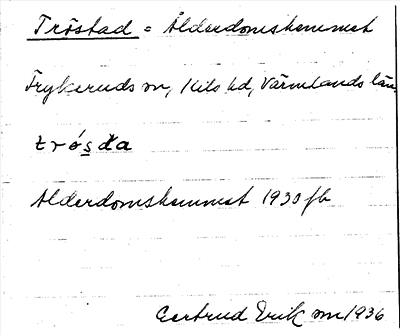 Tröstad = Ålderdomshemmet
Frykeruds sn, Kils hd, Värmlands län.
trósta
Ålderdomshemmet 1930 fb
Gertrud Erik 1936